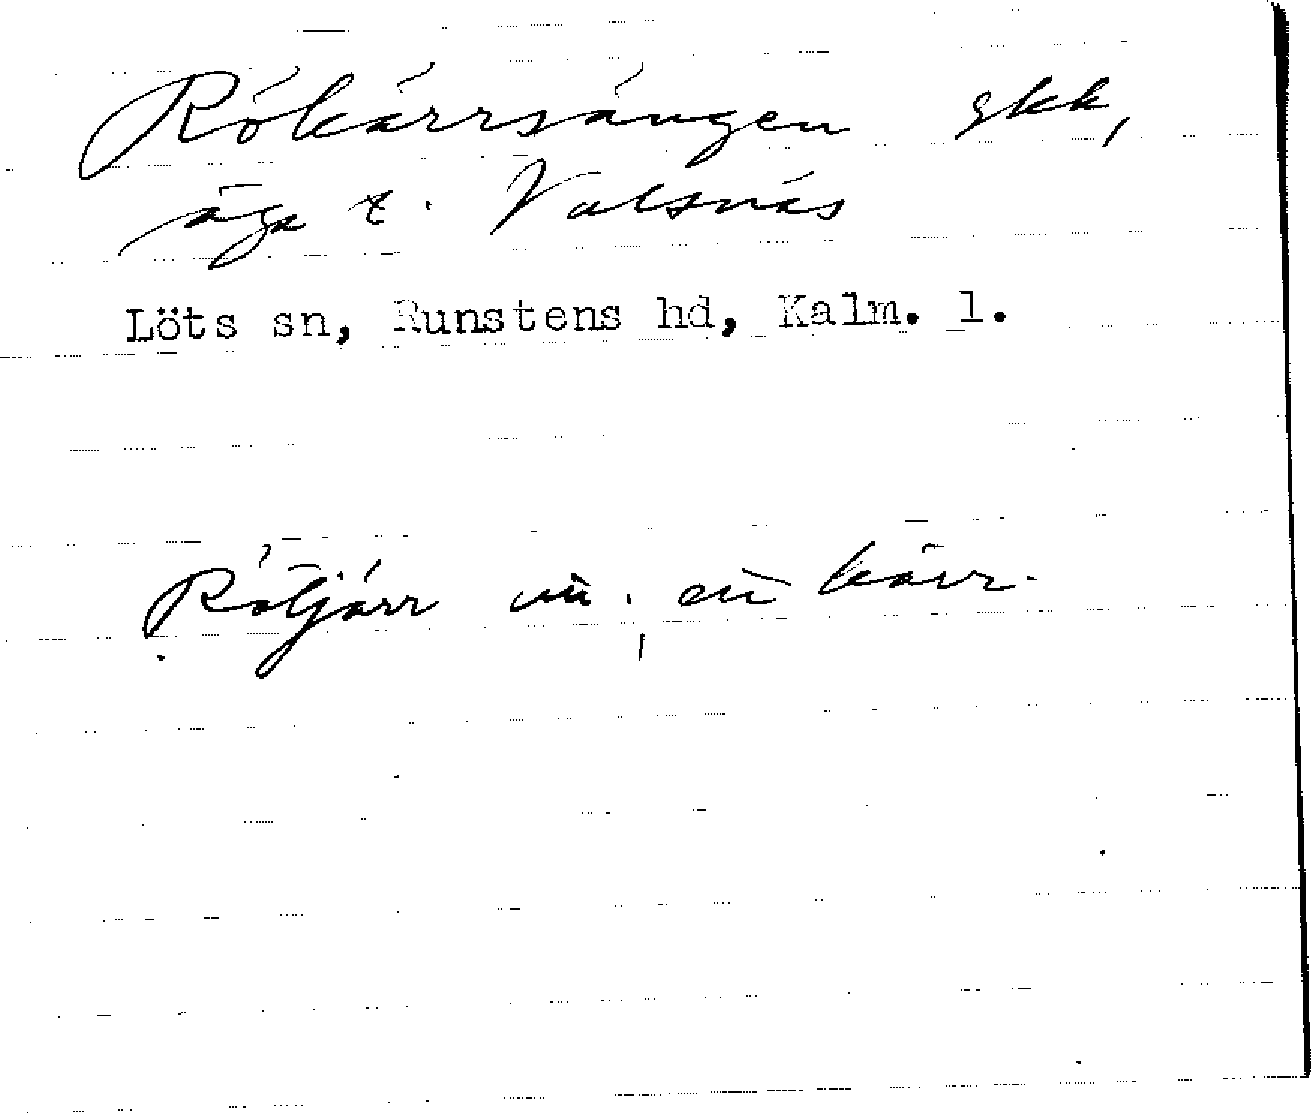 Rökärrsängen gkk,
äga t. Valsnäs
Löts sn, Runstens hd, Kalm. l.
Rötjärr . kärr.